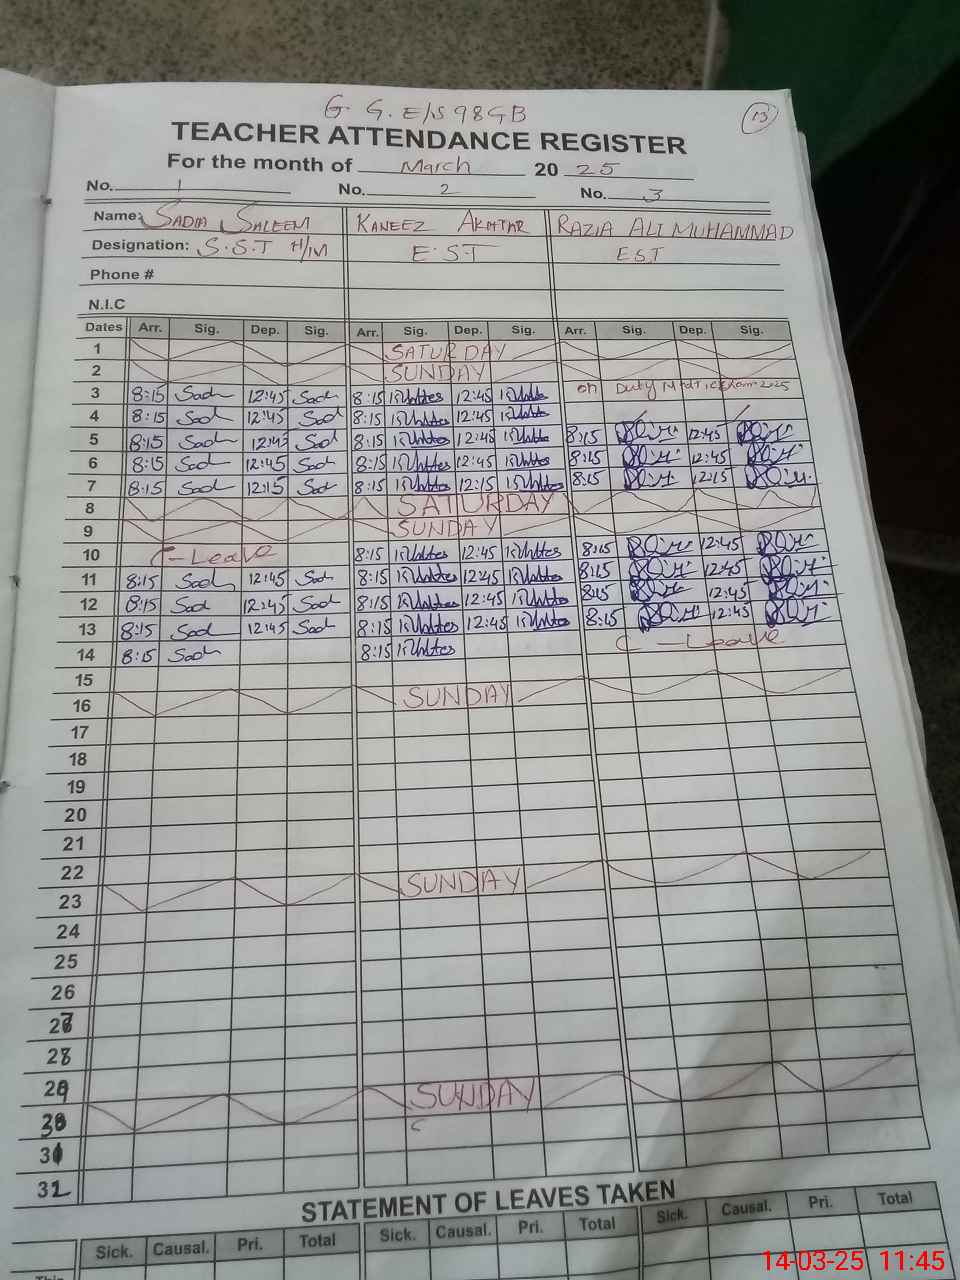 G. G. E/S 98GB
13
TEACHER ATTENDANCE REGISTER
For the month of March 20 25
No. 1 No. 2 No. 3
Name: SADIA SALEEM KANEEZ AKHTAR RAZIA ALI MUHAMMAD
Designation: S.S.T H/M E.S.T E.S.T
Phone #
N.I.C
Dates Arr. Sig. Dep. Sig. Arr. Sig. Dep. Sig. Arr. Sig. Dep. Sig.
1 SATURDAY
2 SUNDAY
3 8:15 12:45 8:15 12:45 on Duty Exam 2025
4 8:15 12:45 8:15 12:45
5 8:15 12:45 8:15 12:45 8:15 12:45
6 8:15 12:45 8:15 12:45 8:15 12:45
7 8:15 12:15 8:15 12:15 8:15 12:15
8 SATURDAY
9 SUNDAY
10 C-Leave 8:15 12:45 8:15 12:45
11 8:15 12:45 8:15 12:45 8:15 12:45
12 8:15 12:45 8:15 12:45 8:15 12:45
13 8:15 12:45 8:15 12:45 8:15 12:45
14 8:15 8:15 C-Leave
15
16 SUNDAY
17
18
19
20
21
22
23 SUNDAY
24
25
26
27
28
29
30 SUNDAY
31
32
STATEMENT OF LEAVES TAKEN
Sick. Causal. Pri. Total Sick. Causal. Pri. Total Sick. Causal. Pri. Total
This
14-03-25 11:45